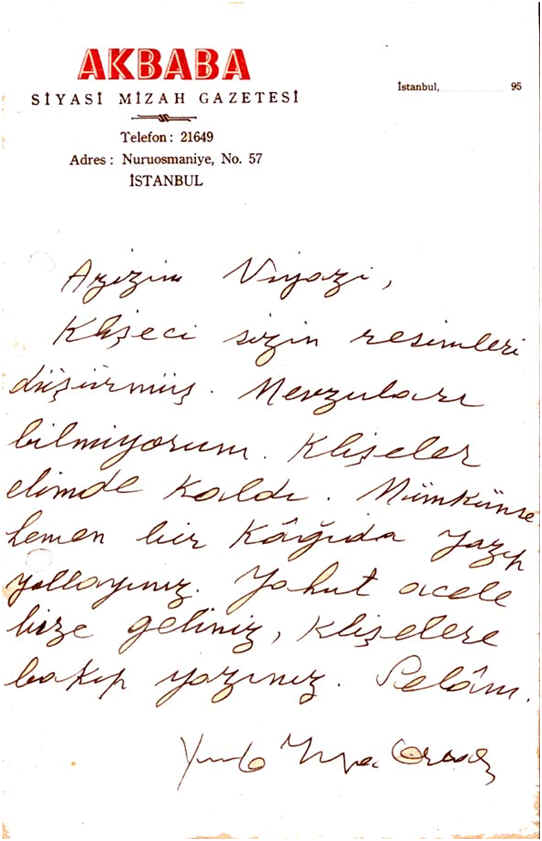 AKBABA
SİYASİ MİZAH GAZETESİ
Telefon : 21649
Adres : Nuruosmaniye, No. 57
İSTANBUL
İstanbul, 95
Azizim Niyazi,
Klişeci sizin resimleri
düşürmüş. Mevzuları
bilmiyorum. Klişeler
elimde kaldı. Mümkünse
hemen bir kâğıda yazıp
yollayınız. Yahut acele
bize geliniz, klişelere
bakıp yazınız. Selâm.
Yusuf Ziya Ortaç